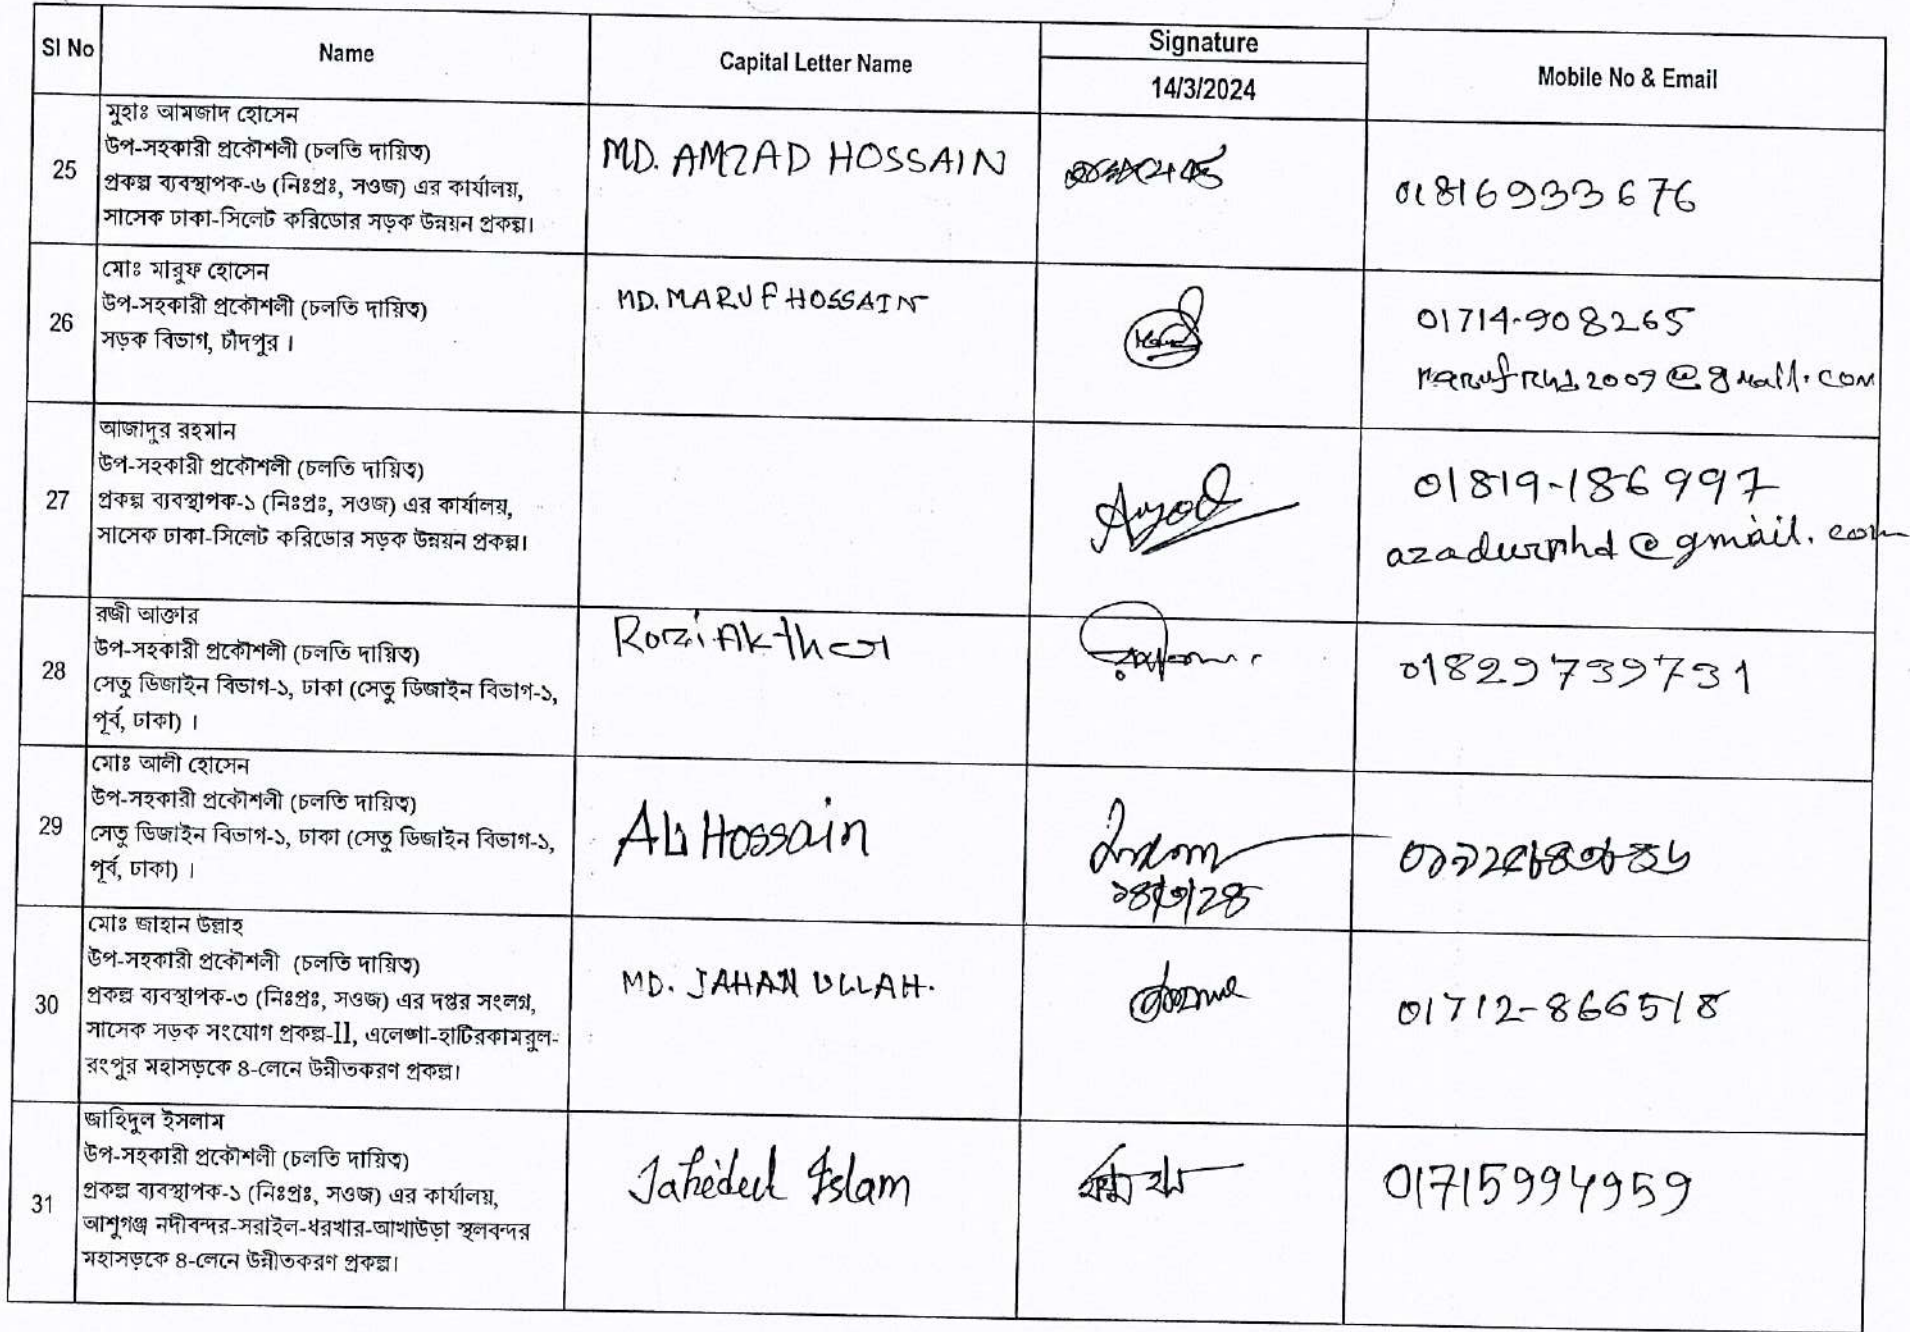 Sl No
Name
Capital Letter Name
Signature
14/3/2024
Mobile No & Email
25
মুহাঃ আমজাদ হোসেন
উপ-সহকারী প্রকৌশলী (চলতি দায়িত্ব)
প্রকল্প ব্যবস্থাপক-৬ (নিঃপ্রঃ, সওজ) এর কার্যালয়,
সাসেক ঢাকা-সিলেট করিডোর সড়ক উন্নয়ন প্রকল্প।
MD. AMZAD HOSSAIN
01816933676
26
মোঃ মারুফ হোসেন
উপ-সহকারী প্রকৌশলী (চলতি দায়িত্ব)
সড়ক বিভাগ, চাঁদপুর ।
MD. MARUF HOSSAIN
01714-908265
27
আজাদুর রহমান
উপ-সহকারী প্রকৌশলী (চলতি দায়িত্ব)
প্রকল্প ব্যবস্থাপক-১ (নিঃপ্রঃ, সওজ) এর কার্যালয়,
সাসেক ঢাকা-সিলেট করিডোর সড়ক উন্নয়ন প্রকল্প।
01819-186997
azadurrhd@gmail.com
28
রজী আক্তার
উপ-সহকারী প্রকৌশলী (চলতি দায়িত্ব)
সেতু ডিজাইন বিভাগ-১, ঢাকা (সেতু ডিজাইন বিভাগ-১,
পূর্ব, ঢাকা) ।
Rozi Akther
01829739731
29
মোঃ আলী হোসেন
উপ-সহকারী প্রকৌশলী (চলতি দায়িত্ব)
সেতু ডিজাইন বিভাগ-১, ঢাকা (সেতু ডিজাইন বিভাগ-১,
পূর্ব, ঢাকা) ।
Ali Hossain
১৪/৩/২৪
30
মোঃ জাহান উল্লাহ
উপ-সহকারী প্রকৌশলী (চলতি দায়িত্ব)
প্রকল্প ব্যবস্থাপক-৩ (নিঃপ্রঃ, সওজ) এর দপ্তর সংলগ্ন,
সাসেক সড়ক সংযোগ প্রকল্প-II, এলেঙ্গা-হাটিরকামরুল-
রংপুর মহাসড়কে ৪-লেনে উন্নীতকরণ প্রকল্প।
MD. JAHAN ULLAH.
01712-866518
31
জাহিদুল ইসলাম
উপ-সহকারী প্রকৌশলী (চলতি দায়িত্ব)
প্রকল্প ব্যবস্থাপক-১ (নিঃপ্রঃ, সওজ) এর কার্যালয়,
আশুগঞ্জ নদীবন্দর-সরাইল-ধরখার-আখাউড়া স্থলবন্দর
মহাসড়কে ৪-লেনে উন্নীতকরণ প্রকল্প।
Jahedul Islam
01715994959